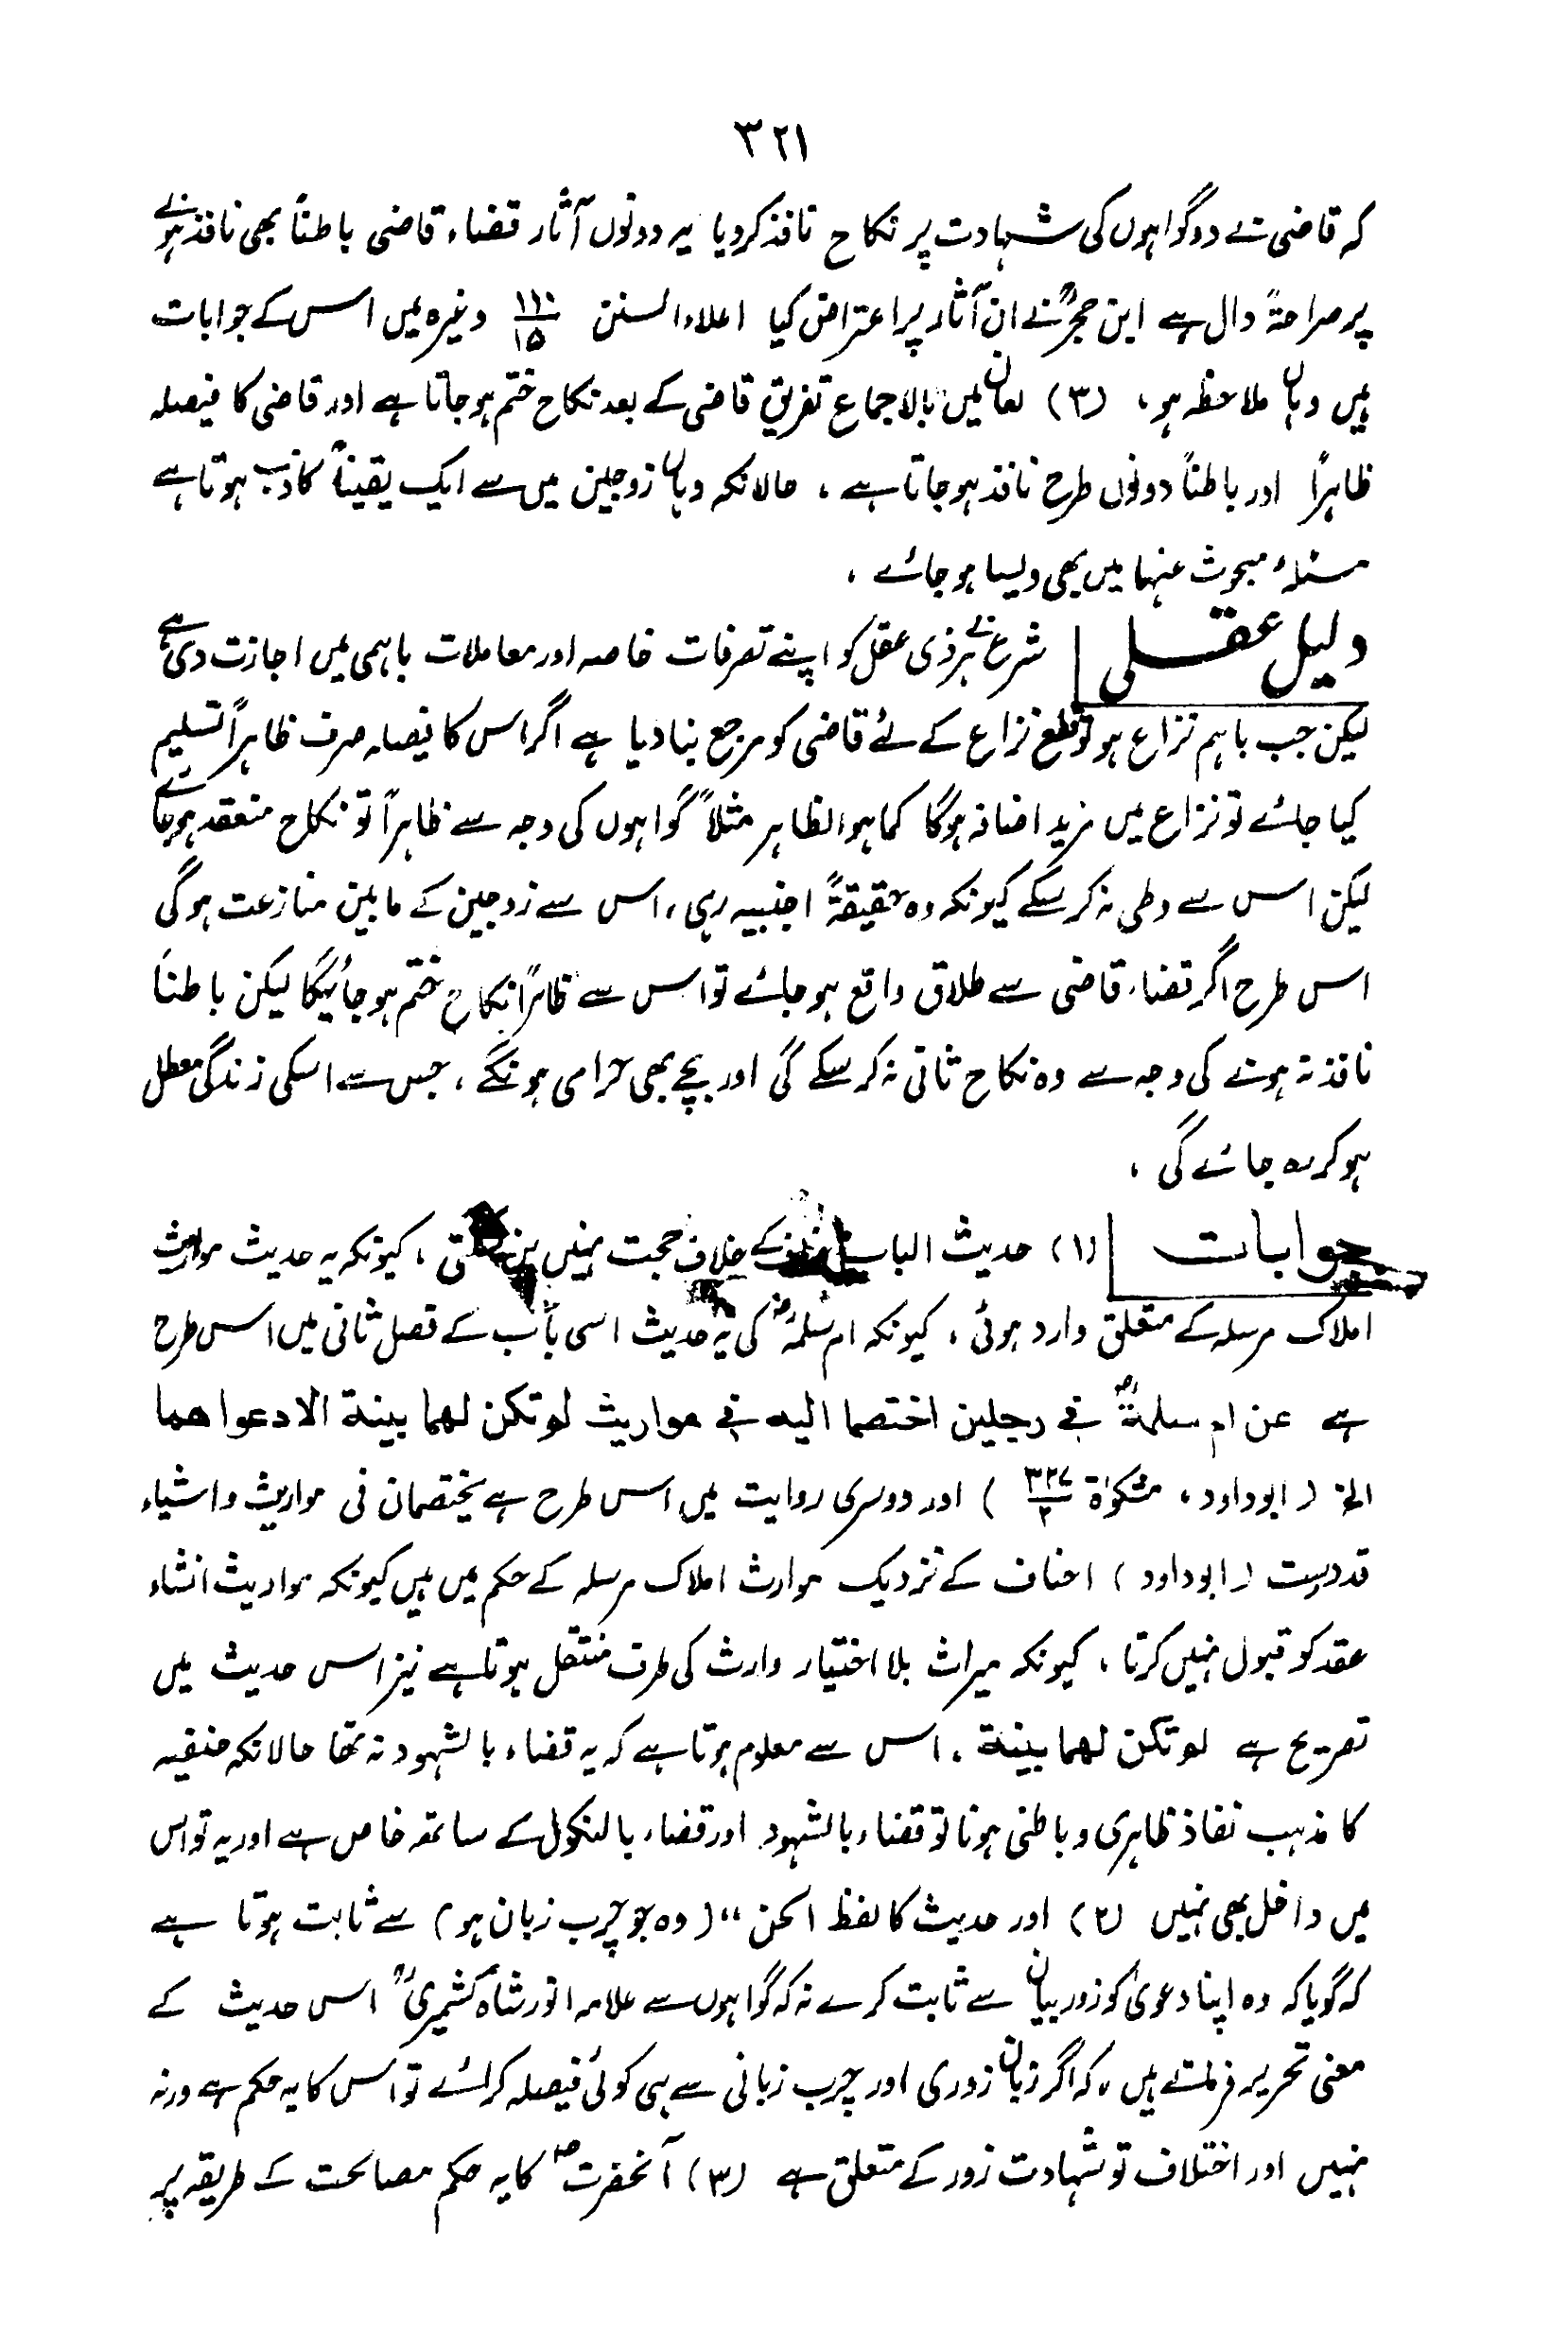 ۳۲۱
کہ قاضی نے دو گواہوں کی شہادت پر نکاح نافذ کردیا یہ دونوں آثار قضاء قاضی باطناً بھی نافذ ہونے
پر صراحۃً دال ہے ابن حجرؒ نے ان آثار پر اعتراض کیا اعلاء السنن ۱۱۰/۱۵ وغیرہ میں اس کے جوابات
ہیں وہاں ملاحظہ ہو، (۳) لعان میں بالاجماع تفریق قاضی کے بعد نکاح ختم ہوجاتا ہے اور قاضی کا فیصلہ
ظاہراً اور باطناً دونوں طرح نافذ ہوجاتا ہے، حالانکہ وہاں زوجین میں سے ایک یقیناً کاذب ہوتا ہے
مسئلہ مبحوث عنہا میں بھی ویسا ہوجائے،
دلیل عقلی | شرع نے ہر ذی عقل کو اپنے تصرفات خاصہ اور معاملات باہمی میں اجازت دی ہے
لیکن جب باہم نزاع ہو تو قطع نزاع کے لئے قاضی کو مرجع بنا دیا ہے اگر اس کا فیصلہ صرف ظاہراً تسلیم
کیا جائے تو نزاع میں مزید اضافہ ہوگا کما ہو الظاہر مثلاً گواہوں کی وجہ سے ظاہراً تو نکاح منعقد ہوجائے
لیکن اس سے وطی نہ کرسکے کیونکہ وہ حقیقۃً اجنبیہ رہی، اس سے زوجین کے مابین منازعت ہوگی
اس طرح اگر قضاء قاضی سے طلاق واقع ہوجائے تو اس سے ظاہراً نکاح ختم ہوجائیگا لیکن باطناً
نافذ نہ ہونے کی وجہ سے وہ نکاح ثانی نہ کرسکے گی اور بچے بھی حرامی ہونگے، جس سے اسکی زندگی معطل
ہوکر رہ جائے گی،
جوابات | (۱) حدیث الباب کے خلاف حجت نہیں بن سکتی، کیونکہ یہ حدیث موارث
املاک مرسلہ کے متعلق وارد ہوئی، کیونکہ ام سلمہؓ کی یہ حدیث اسی باب کے فصل ثانی میں اس طرح
ہے عن ام سلمۃؓ فی رجلین اختصما الیہ فی مواریث لو تکن لھما بینۃ الا دعواھما
الخ (ابوداود، مشکوٰۃ ۳۲۷/۲) اور دوسری روایت میں اس طرح ہے یختصمان فی مواریث واشیاء
قد درست (ابوداود) احناف کے نزدیک موارث املاک مرسلہ کے حکم میں ہیں کیونکہ مواریث انشاء
عقد کو قبول نہیں کرتا، کیونکہ میراث بلا اختیار وارث کی طرف منتقل ہوتا ہے نیز اس حدیث میں
تصریح ہے لو تکن لھما بینۃ، اس سے معلوم ہوتا ہے کہ یہ قضاء بالشہود نہ تھا حالانکہ حنفیہ
کا مذہب نفاذ ظاہری و باطنی ہونا تو قضاء بالشہود اور قضاء بالنکول کے ساتھ خاص ہے اور یہ تو اس
میں داخل بھی نہیں (۲) اور حدیث کا لفظ الحن“ (وہ جو چرب زبان ہو) سے ثابت ہوتا ہے
کہ گویا کہ وہ اپنا دعویٰ کو زور بیان سے ثابت کرے نہ کہ گواہوں سے علامہ انور شاہ کشمیریؒ اس حدیث کے
معنی تحریر فرماتے ہیں، کہ اگر زبان زوری اور چرب زبانی سے ہی کوئی فیصلہ کرائے تو اس کا یہ حکم ہے ورنہ
نہیں اور اختلاف تو شہادت زور کے متعلق ہے (۳) آنحضرتؐ کا یہ حکم مصالحت کے طریقہ پر